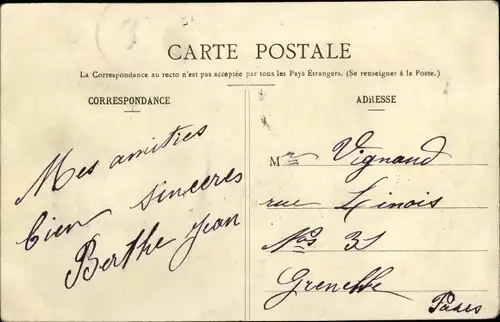 CARTE POSTALE
La Correspondance au recto n'est pas acceptée par tous les Pays Étrangers. (Se renseigner à la Poste.)
CORRESPONDANCE
Mes amitiés
bien sincères
Berthe Jean
ADRESSE
M Vignaud
rue Linois
Nos 31
Grenelle
Paris